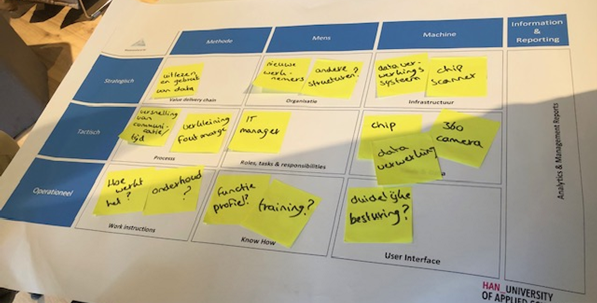 Methode
Mens
Machine
Information
&
Reporting
Strategisch
uitlezen
en gebruik
van data
Value delivery chain
nieuwe
werk-
nemers
andere?
structuren.
Organisatie
data ver-
werkings
systeem
chip
scanner
Infrastructuur
Tactisch
versnelling
van
communi-
catie
tijd
verkleining
fout marge
Process
IT
manager
Roles, tasks & responsibilities
chip
360
camera
data
verwerking
Analytics & Management Reports
Operationeel
Hoe
werkt
het?
onderhoud
?
Work instructions
functie
profiel?
training?
Know How
duidelijke
besturing?
User Interface
HAN_UNIVERSITY
OF APPLIED SC